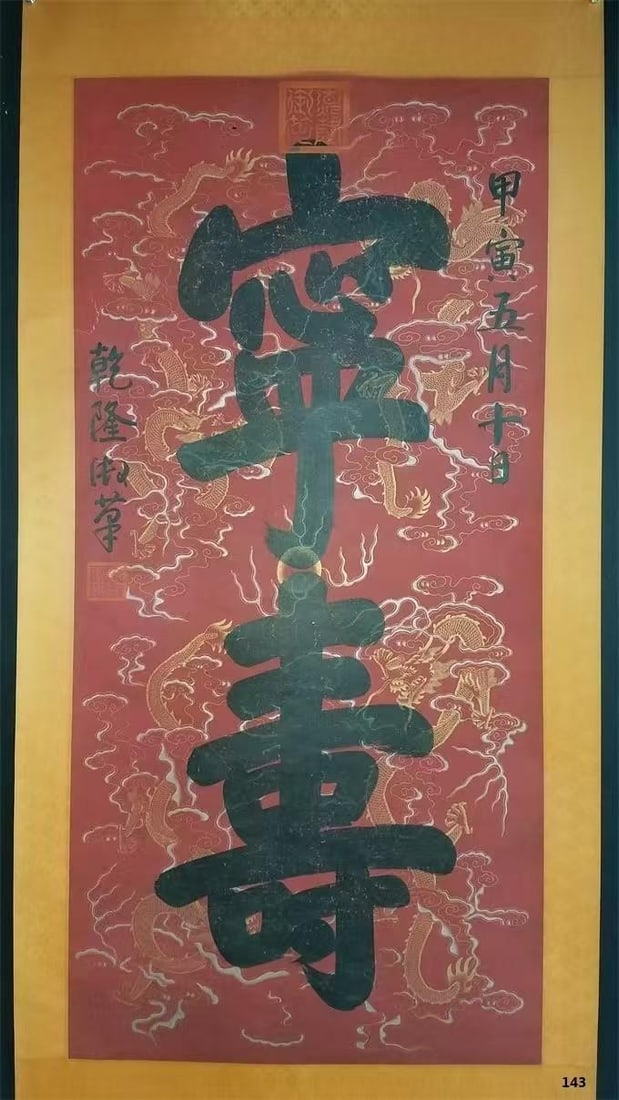 甲寅五月十日
寧壽
乾隆御筆
143